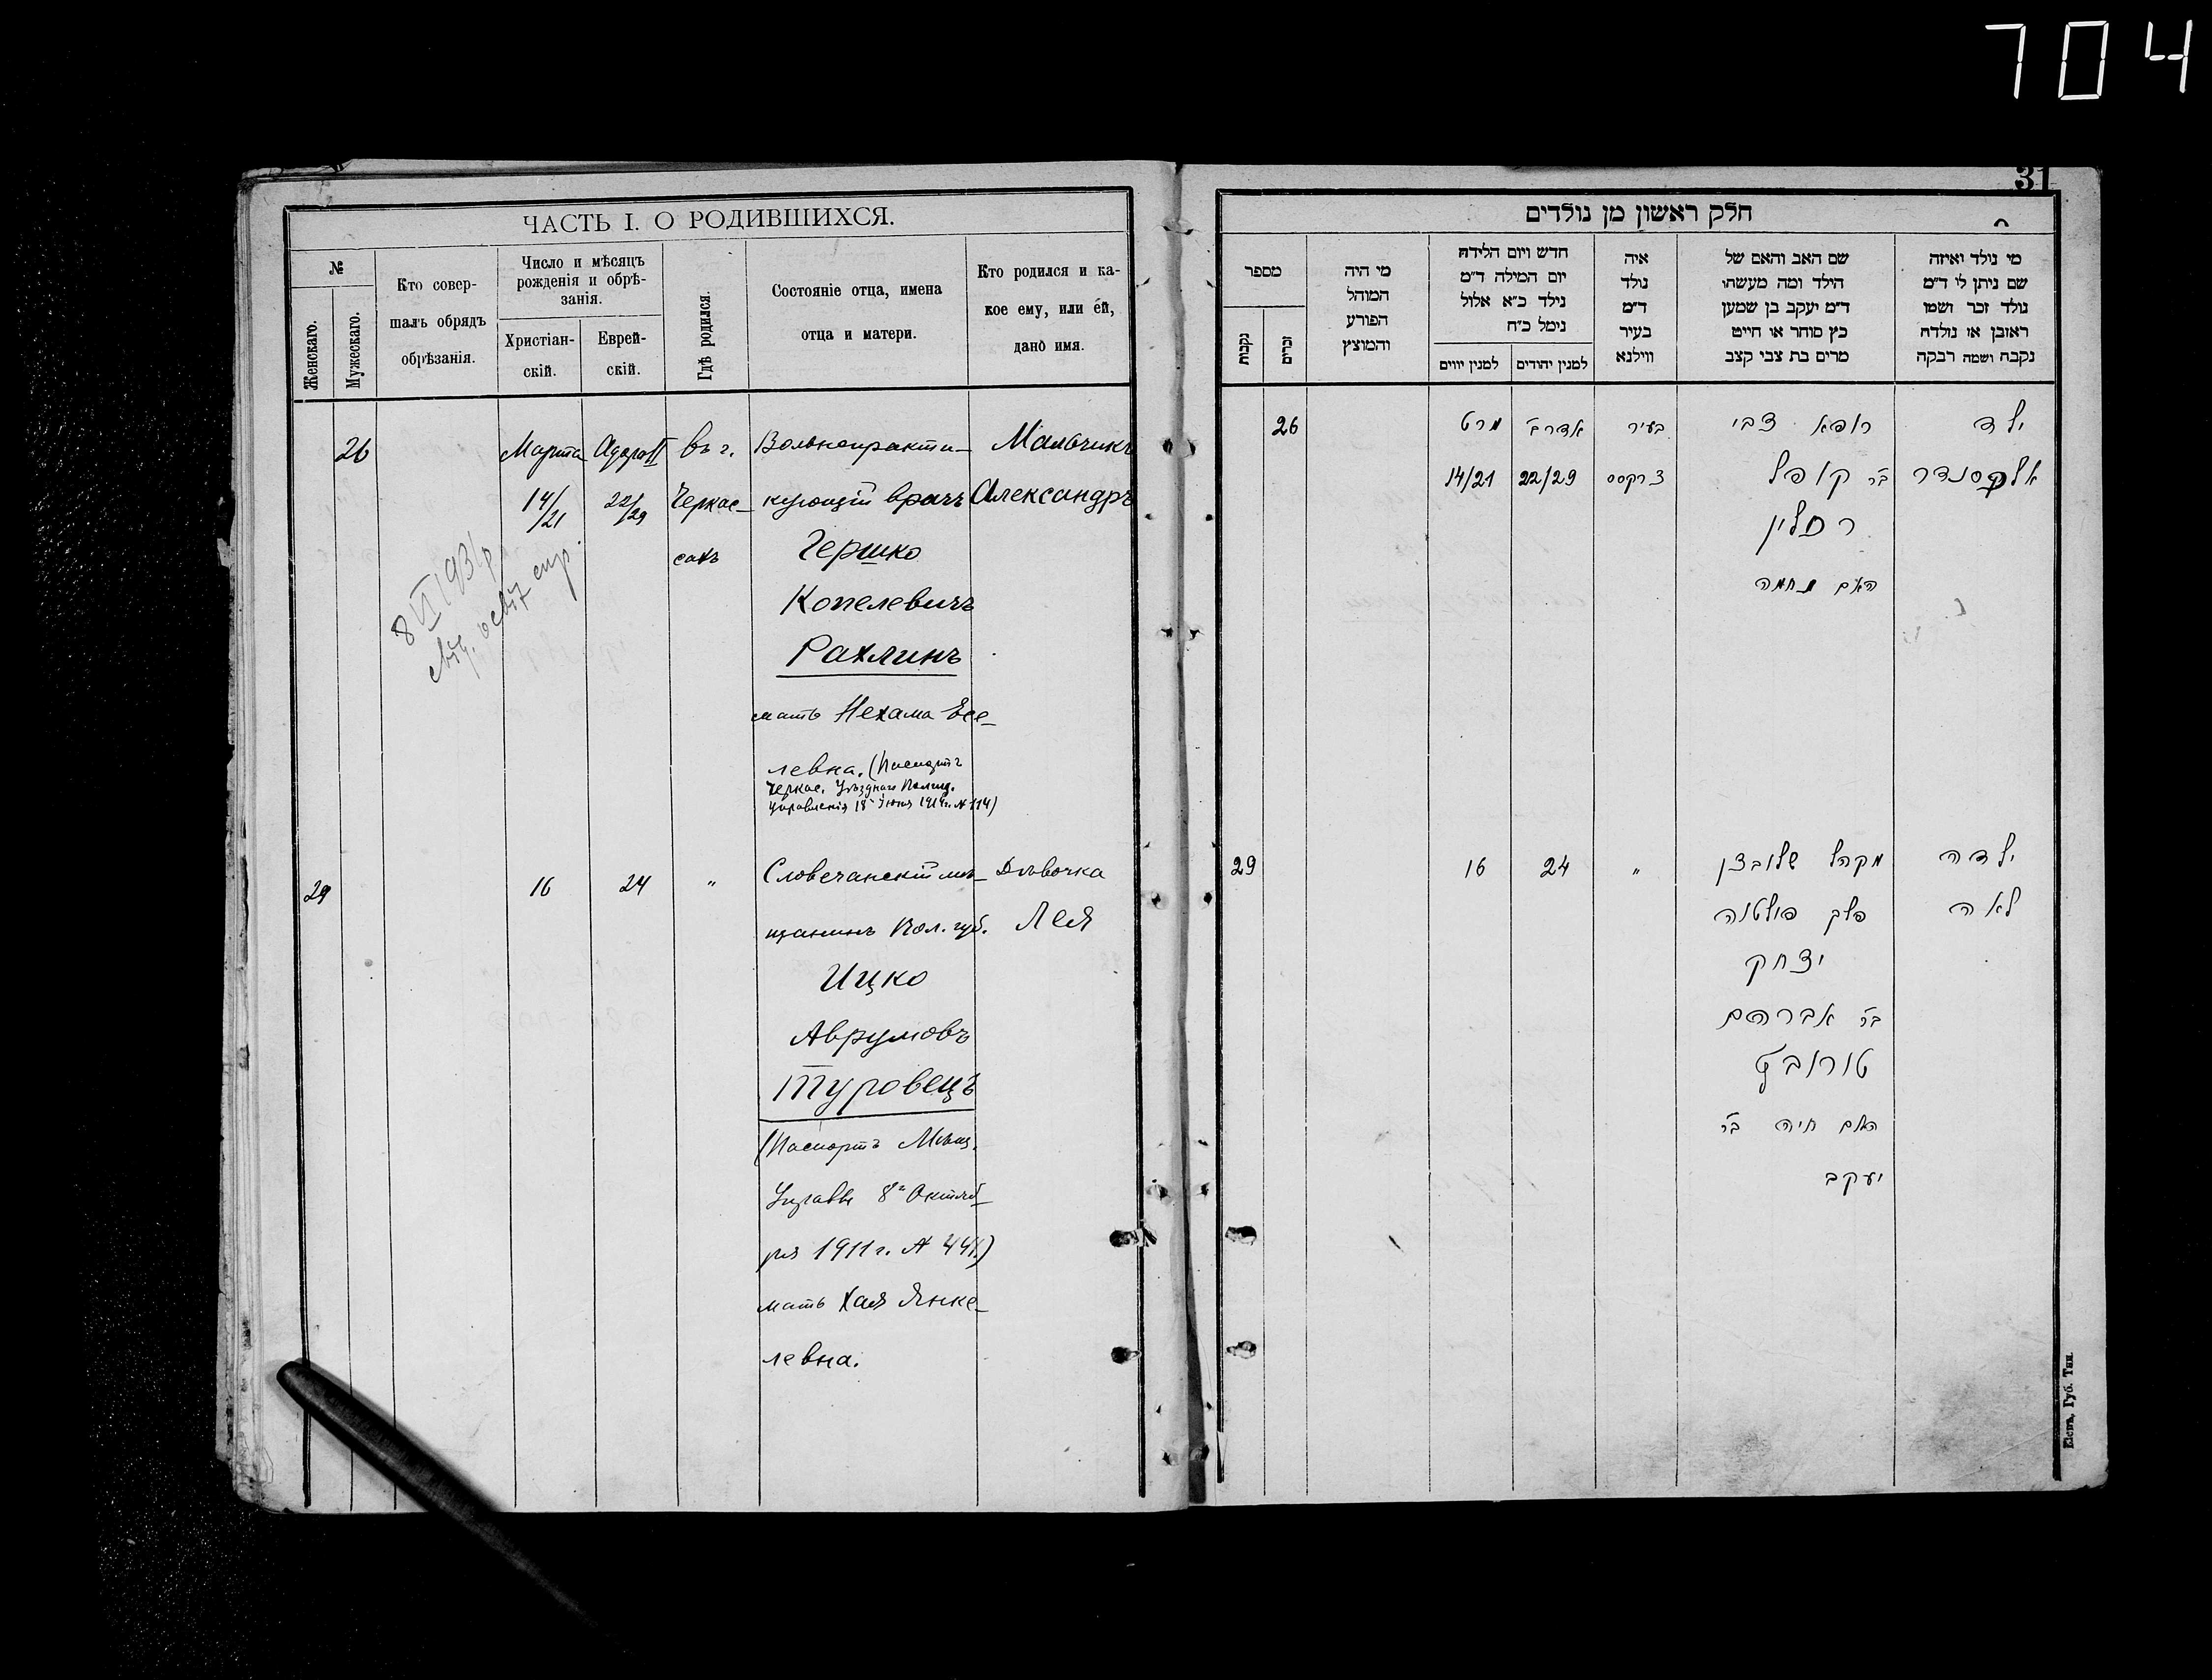 704
ЧАСТЬ I. О РОДИВШИХСЯ.
№
Женскаго.
Мужескаго.
Кто совер-
шалъ обрядъ
обрѣзанія.
Число и мѣсяцъ
рожденія и обрѣ-
занія.
Христіан-
скій.
Еврей-
скій.
Гдѣ родился.
Состояніе отца, имена
отца и матери.
Кто родился и ка-
кое ему, или ей,
дано имя.
26 Марта Адара II въ г. Вольнопракти- Мальчикъ
14/21 22/29 Черкас- кующій врачъ Александръ
сахъ Гершко
Копелевичъ
Рахлинъ
мать Нехама Есе-
левна. (Паспортъ
Черкас. Уѣзднаго Полиц.
Управленія 18 Іюня 1914г. № 114)
8 VI 1931р
29 16 24 „ Словечанскій мѣ- Дѣвочка
щанинъ Вол. губ. Лея
Ицко
Аврумовъ
Туровецъ
(Паспортъ Мѣщ.
Управы 8го Октяб-
ря 1911 г. № 441)
мать Хая Янке-
левна.
31
חלק ראשון מן נולדים
מספר
נקבות
זכרים
מי היה
המוהל
הפורע
והמוצץ
חדש ויום הלידה
יום המילה ד״מ
נילד כ״א אלול
נימל כ״ח
למנין יווים
למנין יהודים
איה
נולד
ד״מ
בעיר
ווילנא
שם האב והאם של
הילד ומה מעשהו
ד״מ יעקב בן שמען
כץ סוחר או חייט
מרים בת צבי קצב
מי נולד ואיזה
שם ניתן לו ד״מ
נולד זכר ושמו
ראובן או נולדה
נקבה ושמה רבקה
26 מרט אדר ב׳ בעיר רופא צבי ילד
14/21 22/29 צרקסס בר קופל אלקסנדר
רחלין
האם נחמה
29 16 24 „ מקהל סלובצן ילדה
פלך פולטוה לאה
יצחק
בר אברהם
טורובץ
האם חיה בר
יעקב
Кіевъ, Губ. Тип.